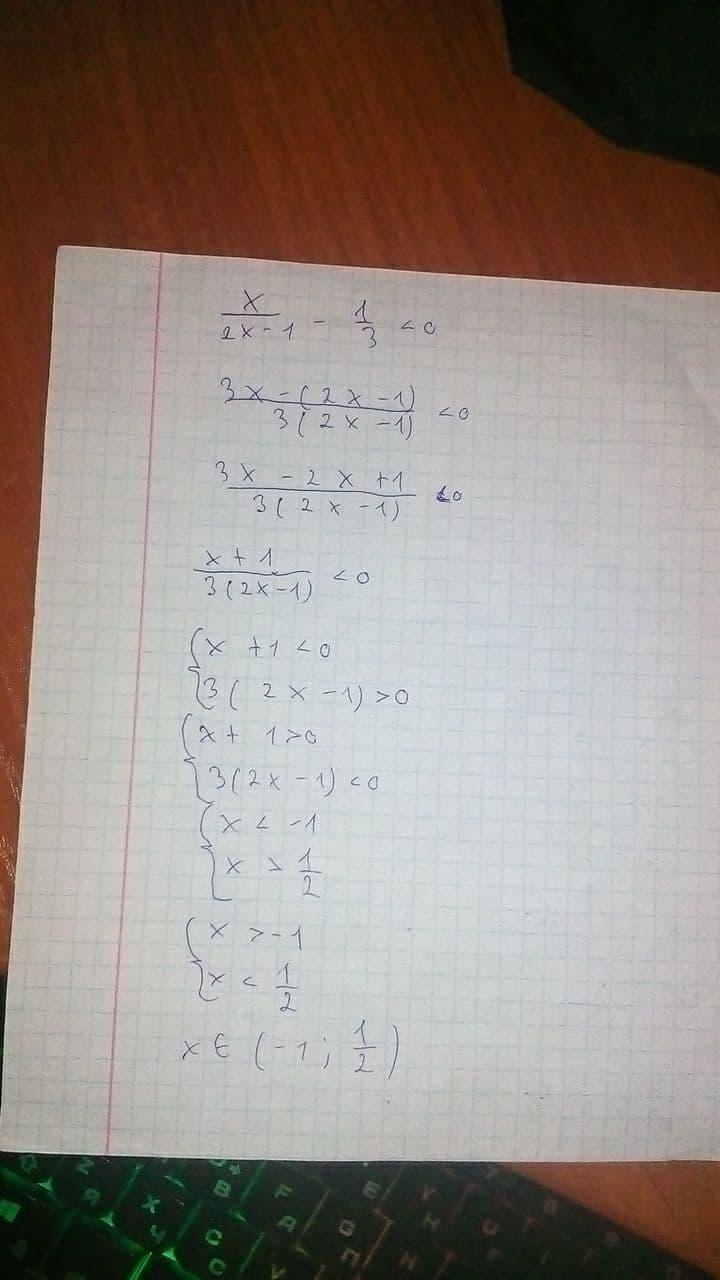 x/(2x-1) - 1/3 <0
(3x-(2x-1))/(3(2x-1)) <0
(3x-2x+1)/(3(2x-1)) <0
(x+1)/(3(2x-1)) <0
{x+1<0
{3(2x-1)>0
{x+1>0
{3(2x-1)<0
{x<-1
{x>1/2
{x>-1
{x<1/2
x∈(-1; 1/2)